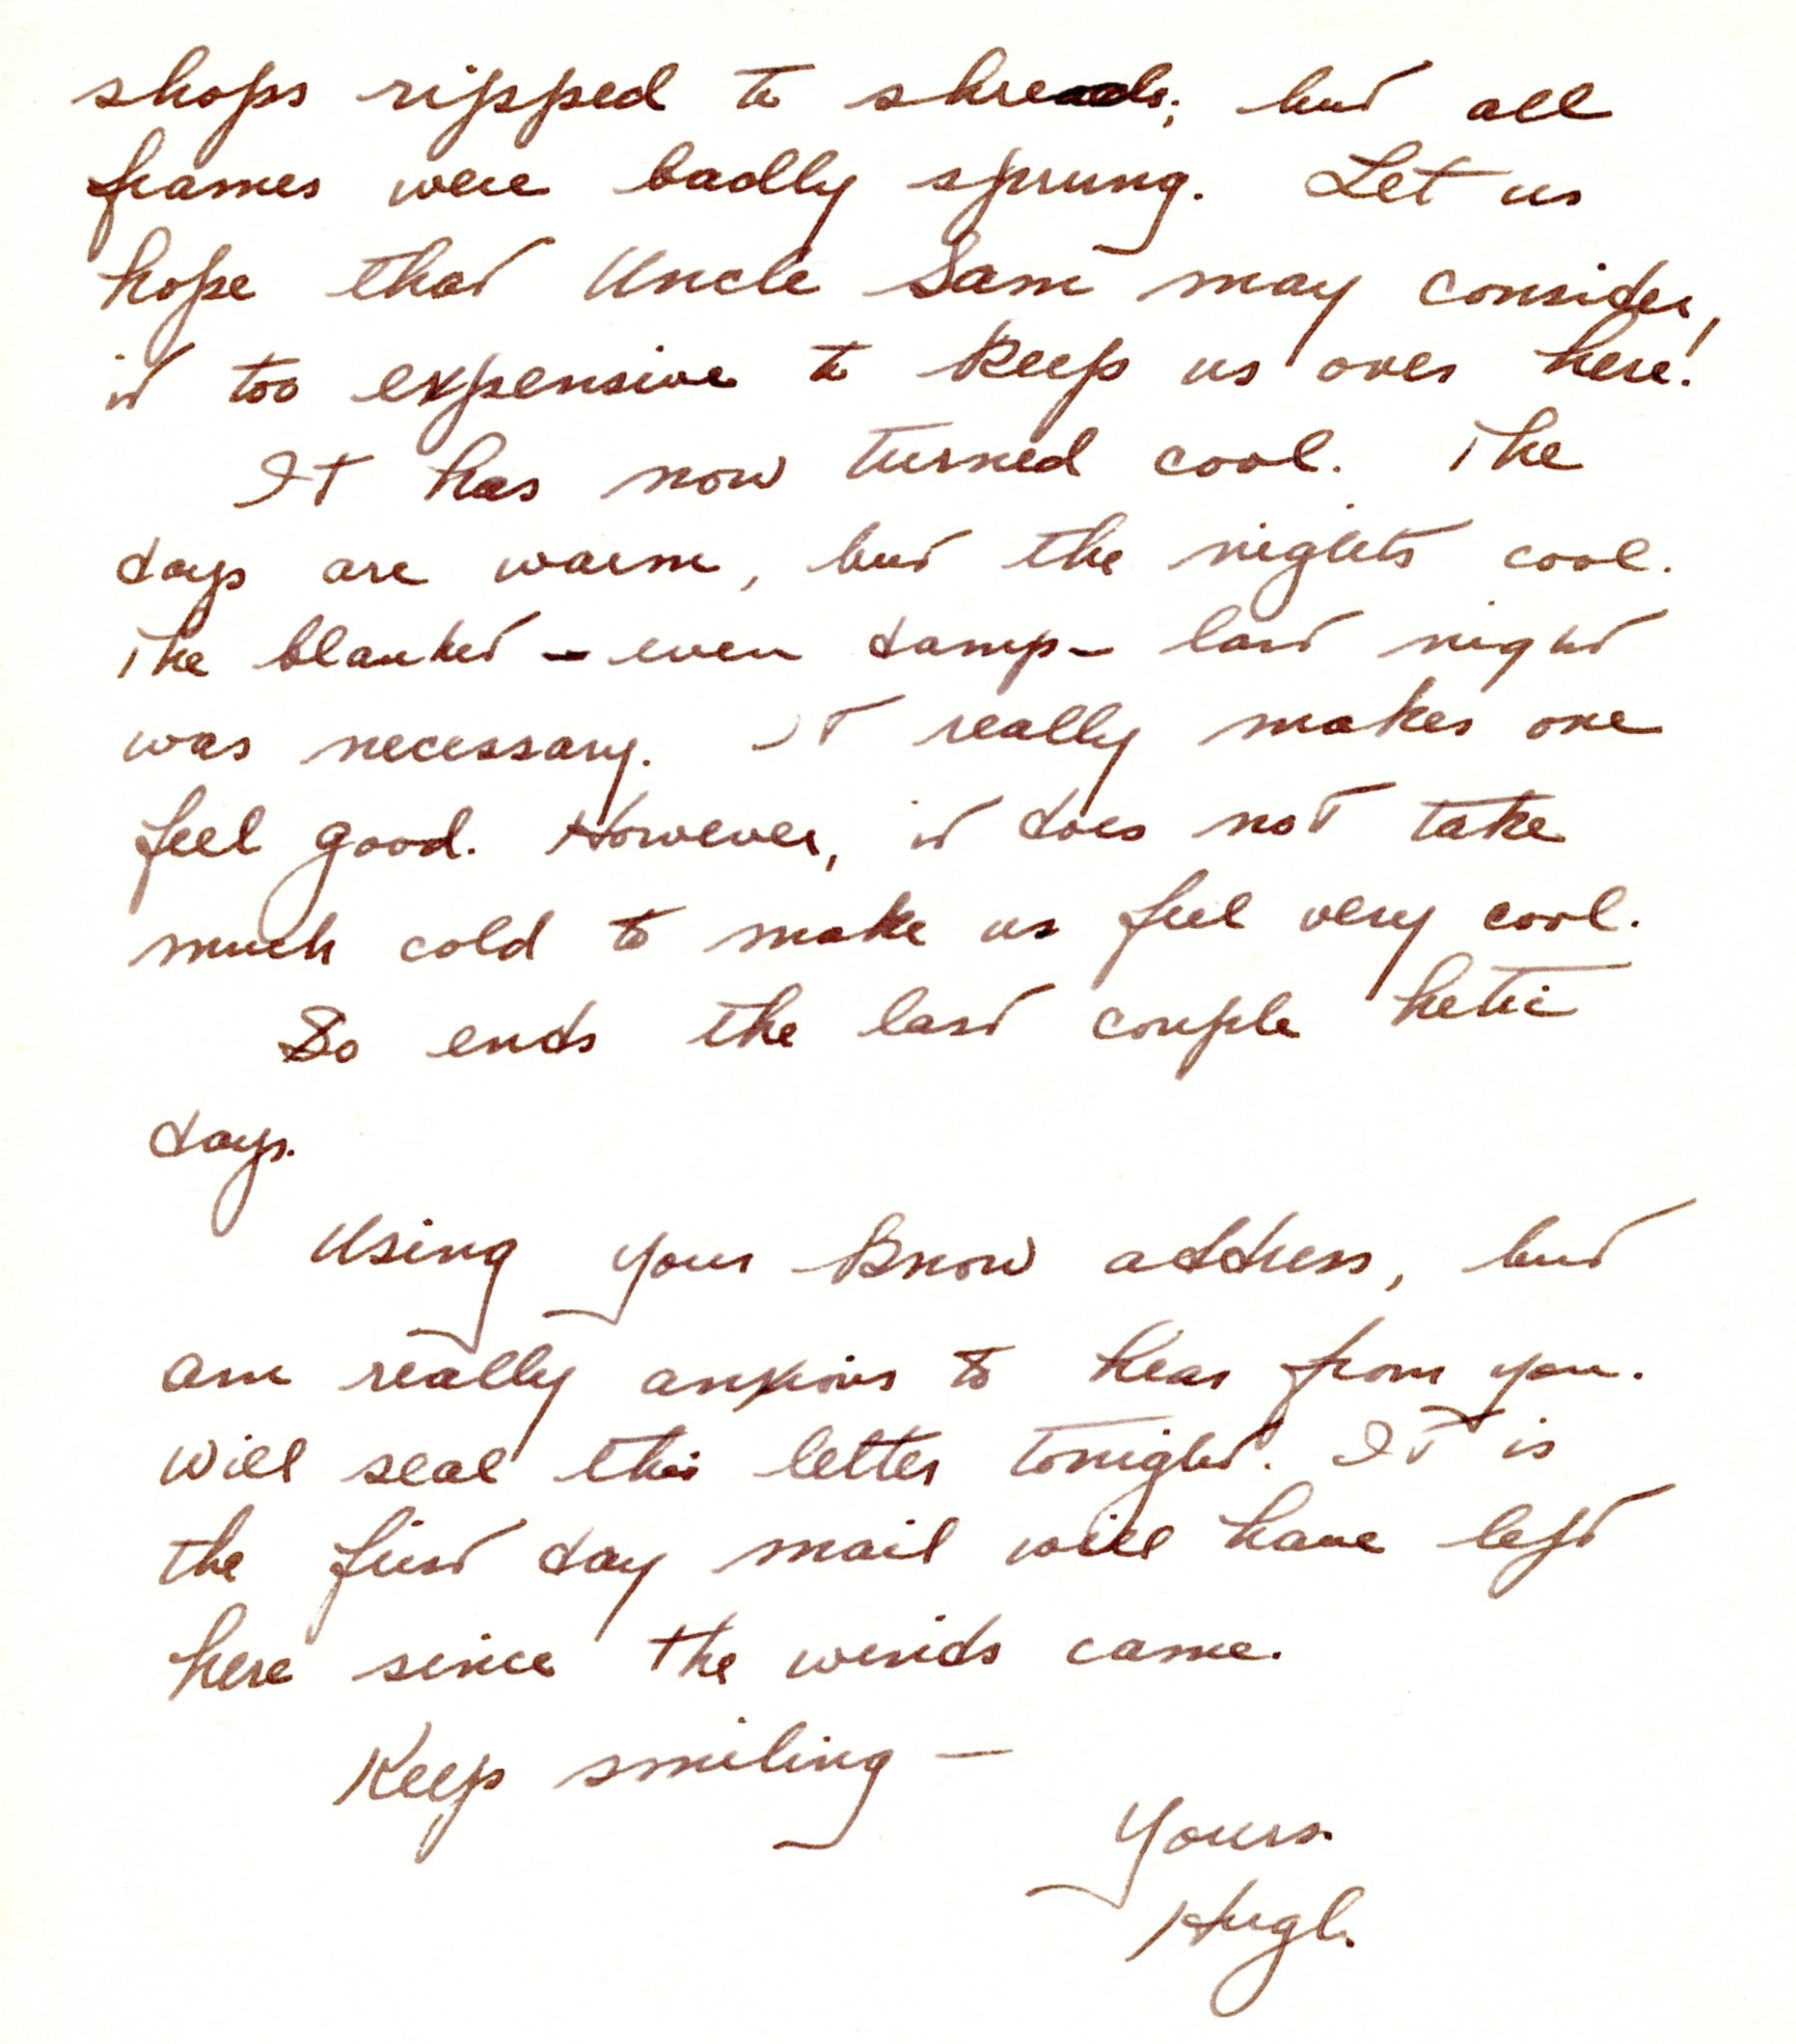 shops ripped to shreads, but all
frames were badly sprung. Let us
hope that Uncle Sam may consider,
it too expensive to keep us over here!
It has now turned cool. The
days are warm, but the nights cool.
The blanket - even damp - last night
was necessary. It really makes one
feel good. However, it does not take
much cold to make us feel very cool.
So ends the last couple hetic
days.
Using your know address, but
am really anxious to hear from you.
Will seal this letter tonight. It is
the first day mail will have left
here since the winds came.
Keep smiling —
Yours.
Hugh.